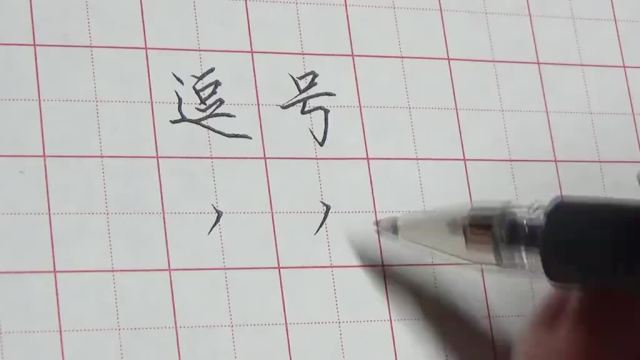 逗号
，，